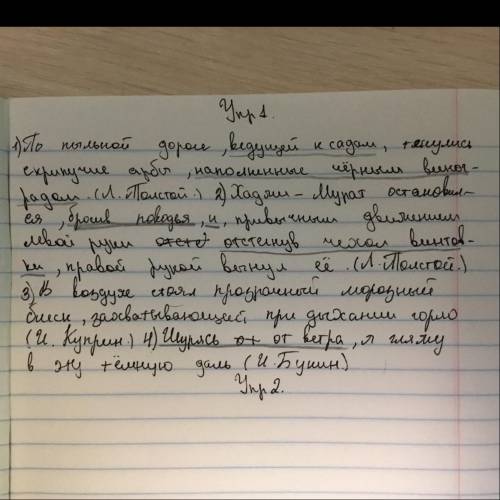 Упр 1.
1) По пыльной дороге, ведущей к садам, тянулись
скрипучие арбы, наполненные чёрным виног-
радом. (Л. Толстой.) 2) Хаджи-Мурат остановил-
ся, бросив поводья, и, привычным движением
левой руки отстегнув чехол винтов-
ки, правой рукой вынул её. (Л. Толстой.)
3) В воздухе стоял прозрачный морозный
блеск, захватывающей при дыхании горло
(И. Куприн) 4) Щурясь от ветра, я гляжу
в эту тёмную даль (И. Бунин)
Упр 2.